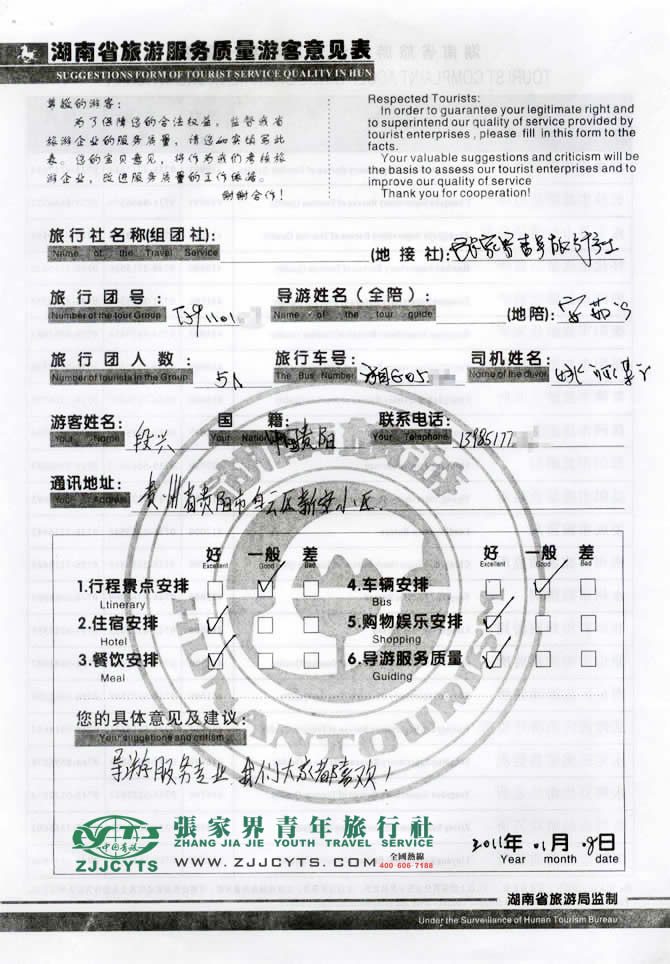 湖南省旅游服务质量游客意见表
SUGGESTIONS FORM OF TOURIST SERVICE QUALITY IN HUN
尊敬的游客:
为了保障您的合法权益，监督我省
旅游企业的服务质量，请您如实填写此
表。您的宝贝意见，将作为我们考核旅
游企业，改进服务质量的工作依据。
谢谢合作！
Respected Tourists:
In order to guarantee your legitimate right and
to superintend our quality of service provided by
tourist enterprises , please fill in this form to the
facts.
Your valuable suggestions and criticism will be
the basis to assess our tourist enterprises and to
improve our quality of service
Thank you for cooperation!
旅行社名称(组团社):
Name of the Travel Service
(地接社):张家界青年旅行社
旅行团号: 
Number of the tour Group
导游姓名(全陪):
Name of the tour guide
(地陪):
旅行团人数: 5人
Number of tourists in the Group
旅行车号:
The Bus Number
司机姓名:
Name of the diver
游客姓名: 段兴
Your Name
国籍: 中国贵阳
Your Nation
联系电话: 13985177
Your Telephone
通讯地址: 贵州省贵阳市白云区新安小区.
Your Address
好 一般 差 好 一般 差
Excellent Good Bad Excellent Good Bad
1.行程景点安排 4.车辆安排
Ltinerary Bus
2.住宿安排 5.购物娱乐安排
Hotel Shopping
3.餐饮安排 6.导游服务质量
Meal Guiding
HUNAN TOURISM
您的具体意见及建议:
Your suggestions and critism
导游服务专业，我们大家都喜欢！
CYTS
中国青旅
ZJJCYTS
張家界青年旅行社
ZHANG JIA JIE YOUTH TRAVEL SERVICE
WWW.ZJJCYTS.COM
全國熱線
400 606 7188
2011年 01月 08日
Year month date
湖南省旅游局监制
Under the Surveillance of Hunan Tourism Bureau